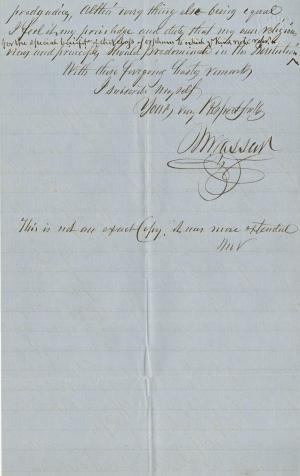 predjudice, Altho' every thing else being equal
I feel it my priviledge and duty that my own religious
for the special benefit of this class of orphans to which
views and principles should predominate in the Institution
With these foregoing hasty remarks
I subscribe myself
Yours very Respectfully
M Vassar
This is not an exact Copy, it was more extended
MV